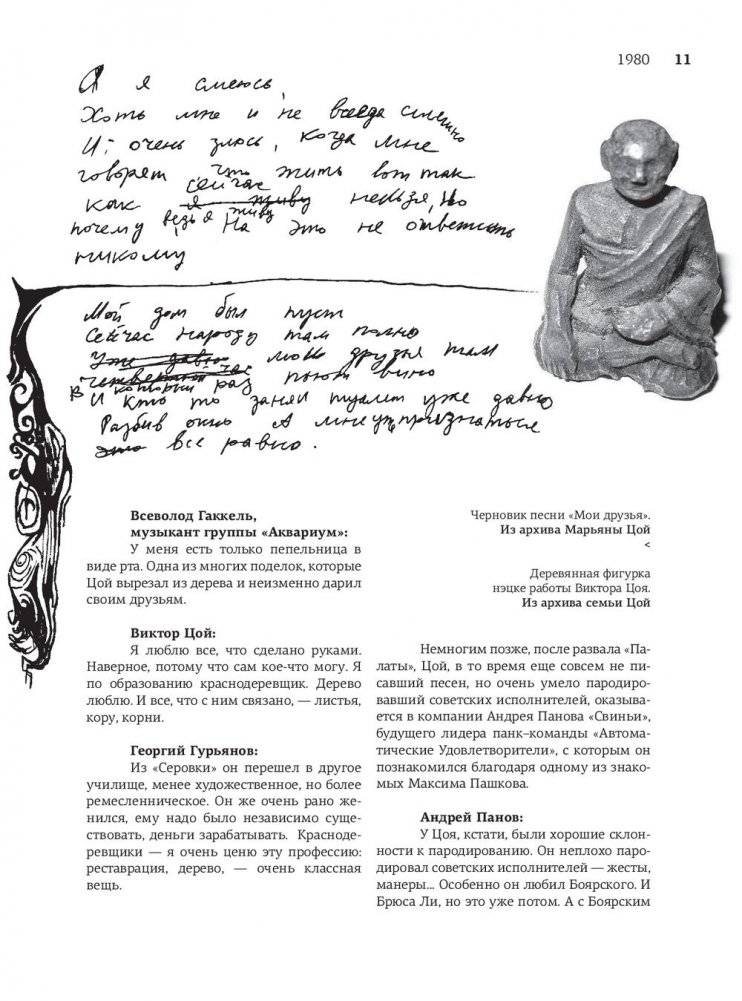 1980 11
А я смеюсь,
Хоть мне и не всегда смешно
И очень злюсь, когда мне
говорят, что жить вот так
сейчас
как я живу нельзя, но
почему, ведь я живу, На это не ответить
никому
Мой дом был пуст
Сейчас народу там полно
Уже давно мои друзья там
в который раз пьют вино
И кто то занял туалет уже давно
Разбив окно А мне уж признаться
это все равно.
Всеволод Гаккель,
музыкант группы «Аквариум»:
У меня есть только пепельница в
виде рта. Одна из многих поделок, которые
Цой вырезал из дерева и неизменно дарил
своим друзьям.
Виктор Цой:
Я люблю все, что сделано руками.
Наверное, потому что сам кое-что могу. Я
по образованию краснодеревщик. Дерево
люблю. И все, что с ним связано, — листья,
кору, корни.
Георгий Гурьянов:
Из «Серовки» он перешел в другое
училище, менее художественное, но более
ремесленническое. Он же очень рано же-
нился, ему надо было независимо суще-
ствовать, деньги зарабатывать. Красноде-
ревщики — я очень ценю эту профессию:
реставрация, дерево, — очень классная
вещь.
Черновик песни «Мои друзья».
Из архива Марьяны Цой
<
Деревянная фигурка
нэцке работы Виктора Цоя.
Из архива семьи Цой
Немногим позже, после развала «Па-
латы», Цой, в то время еще совсем не пи-
савший песен, но очень умело пародиро-
вавший советских исполнителей, оказыва-
ется в компании Андрея Панова «Свиньи»,
будущего лидера панк–команды «Автома-
тические Удовлетворители», с которым он
познакомился благодаря одному из знако-
мых Максима Пашкова.
Андрей Панов:
У Цоя, кстати, были хорошие склон-
ности к пародированию. Он неплохо паро-
дировал советских исполнителей — жесты,
манеры... Особенно он любил Боярского. И
Брюса Ли, но это уже потом. А с Боярским